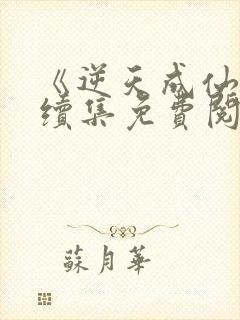 《逆天成仙
續集免費閱
蘇月華